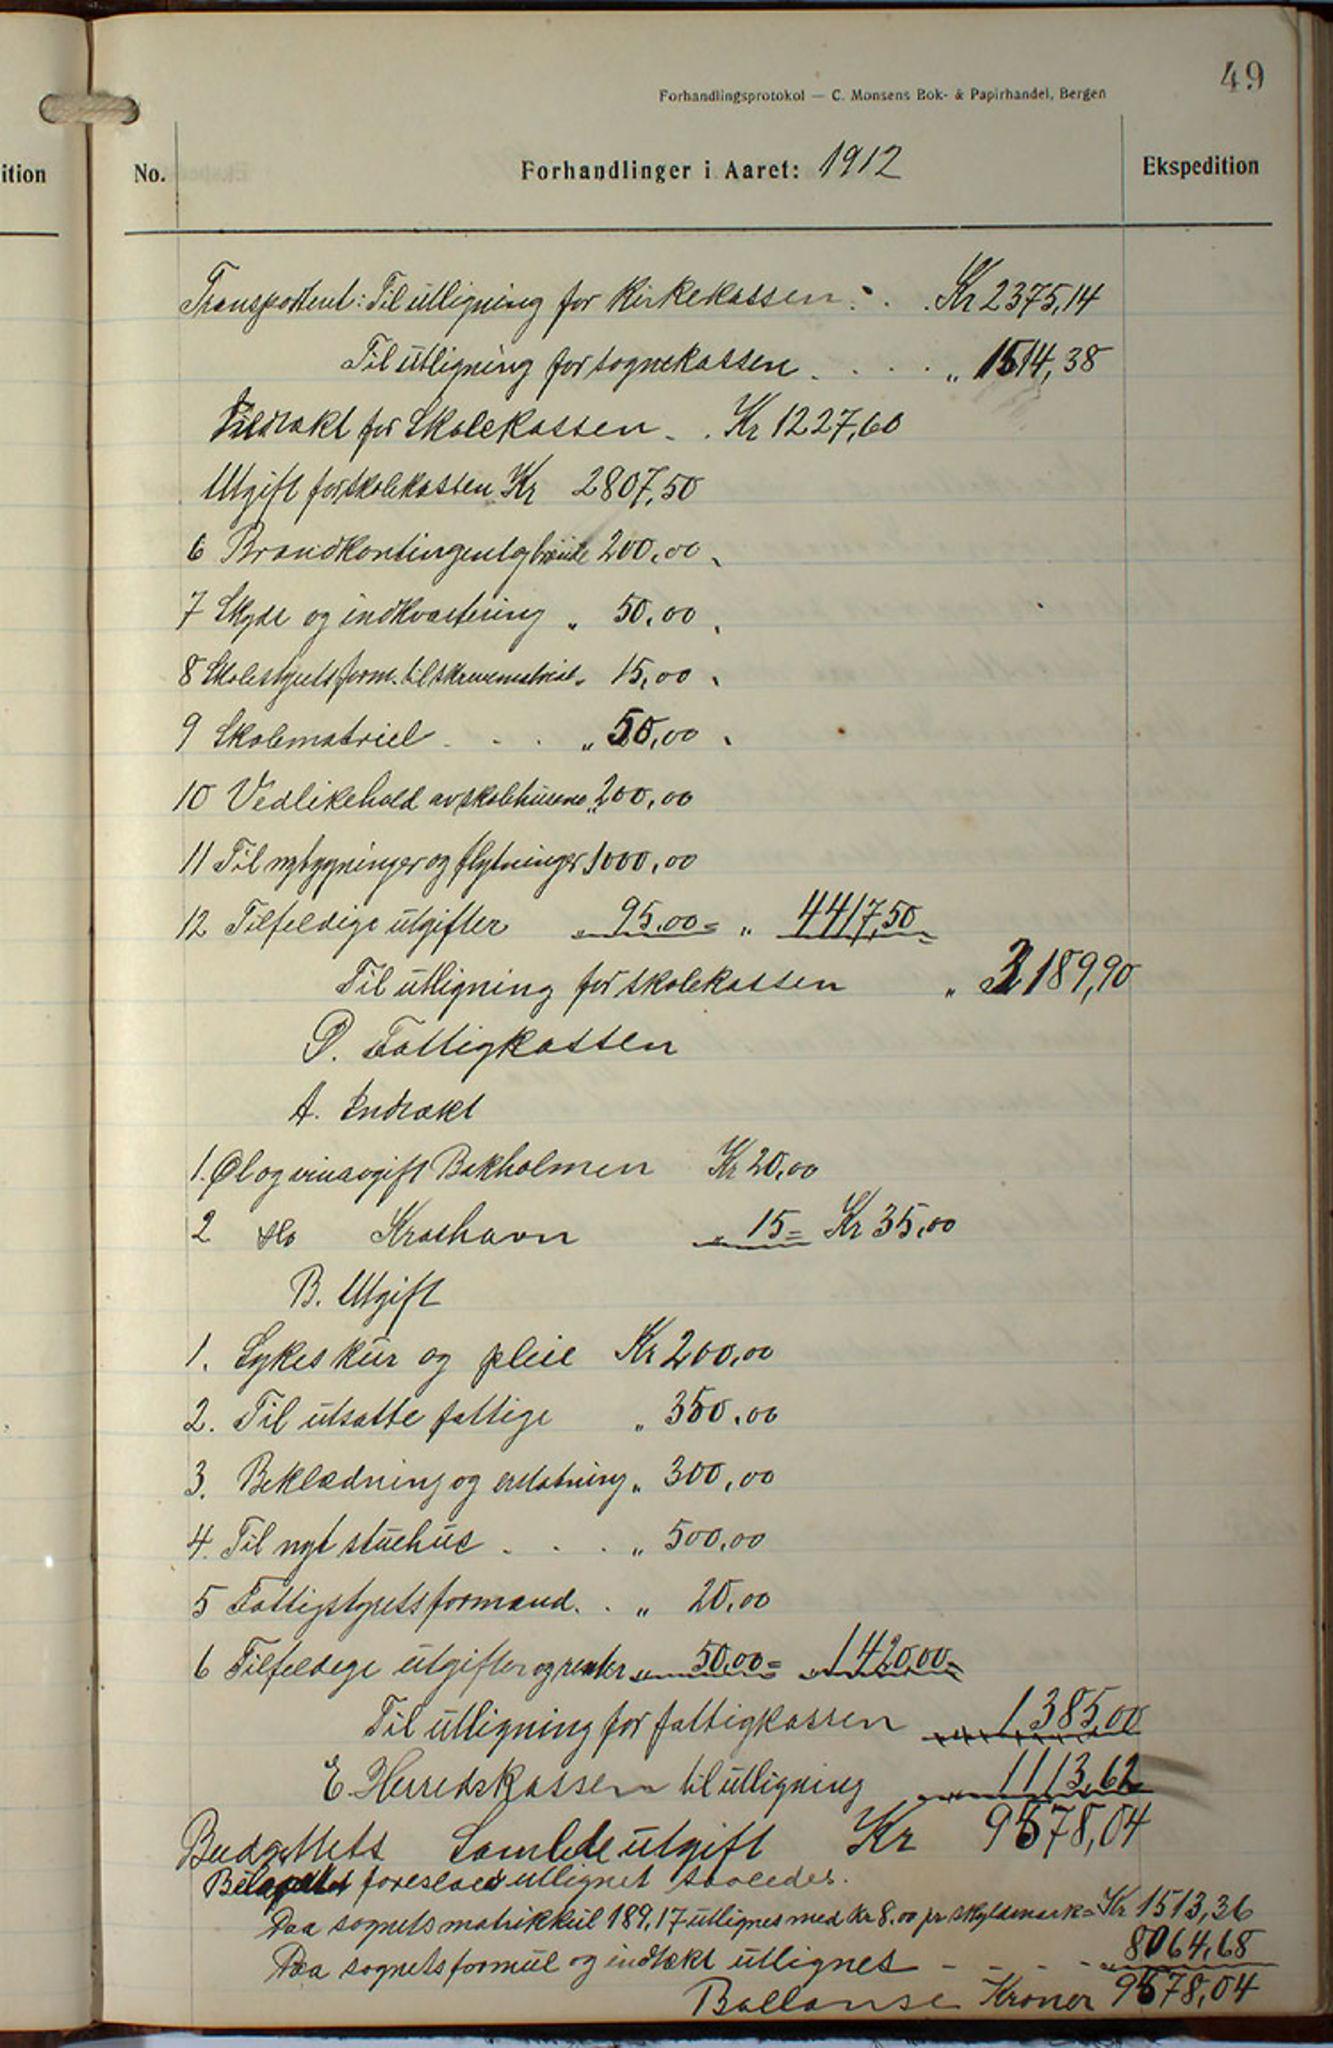 49
Forhandlingsprotokol — C. Monsens Bok- & Papirhandel, Bergen
ition
No. Forhandlinger i Aaret: 1912 Ekspedition
Transportent: Til utligning for Kirkekassen . . Kr 2375,14
Til utligning for sognekassen . . . . " 1514,38
Indtækt for Skolekassen . . Kr 1227,60
Utgift for skolekassen Kr 2807,50
6 Brandkontingent og 200,00
7 Skyds og indkvartering " 50,00
8 Skolestyrets form. til skrivematriel " 15,00
9 Skolematriel . . . " 50,00
10 Vedlikehold av skolehusene " 200,00
11 Til nybygninger og flytninger 1000,00
12 Tilfeldige utgifter " 95,00 = " 4417,50
Til utligning for skolekassen " 3189,90
D. Fattigkassen
A. Indtækt
1. Øl og vinavgift Bakholmen Kr 20,00
2 do Krashavn " 15 = Kr 35,00
B. Utgift
1. Sykes kur og pleie Kr 200,00
2. Til utsatte fattige " 350,00
3. Beklædning og erstatning " 300,00
4. Til nyt stuehus . . . " 500,00
5 Fattigstyrets formand . . " 20,00
6 Tilfeldige utgifter og renter " 50,00 = " 1420,00
Til utligning for fattigkassen " 1385,00
E. Herredskassen til utligning " 1113,62
Budgettets Samlede utgift Kr 9578,04
foreslaaes utlignet saaledes.
Paa sognets matrikkul 189,17 utlignes med Kr 8,00 pr skyldmark = Kr 1513,36
Paa sognets formue og indtækt utlignes - - - - " 8064,68
Ballanse Kroner 9578,04